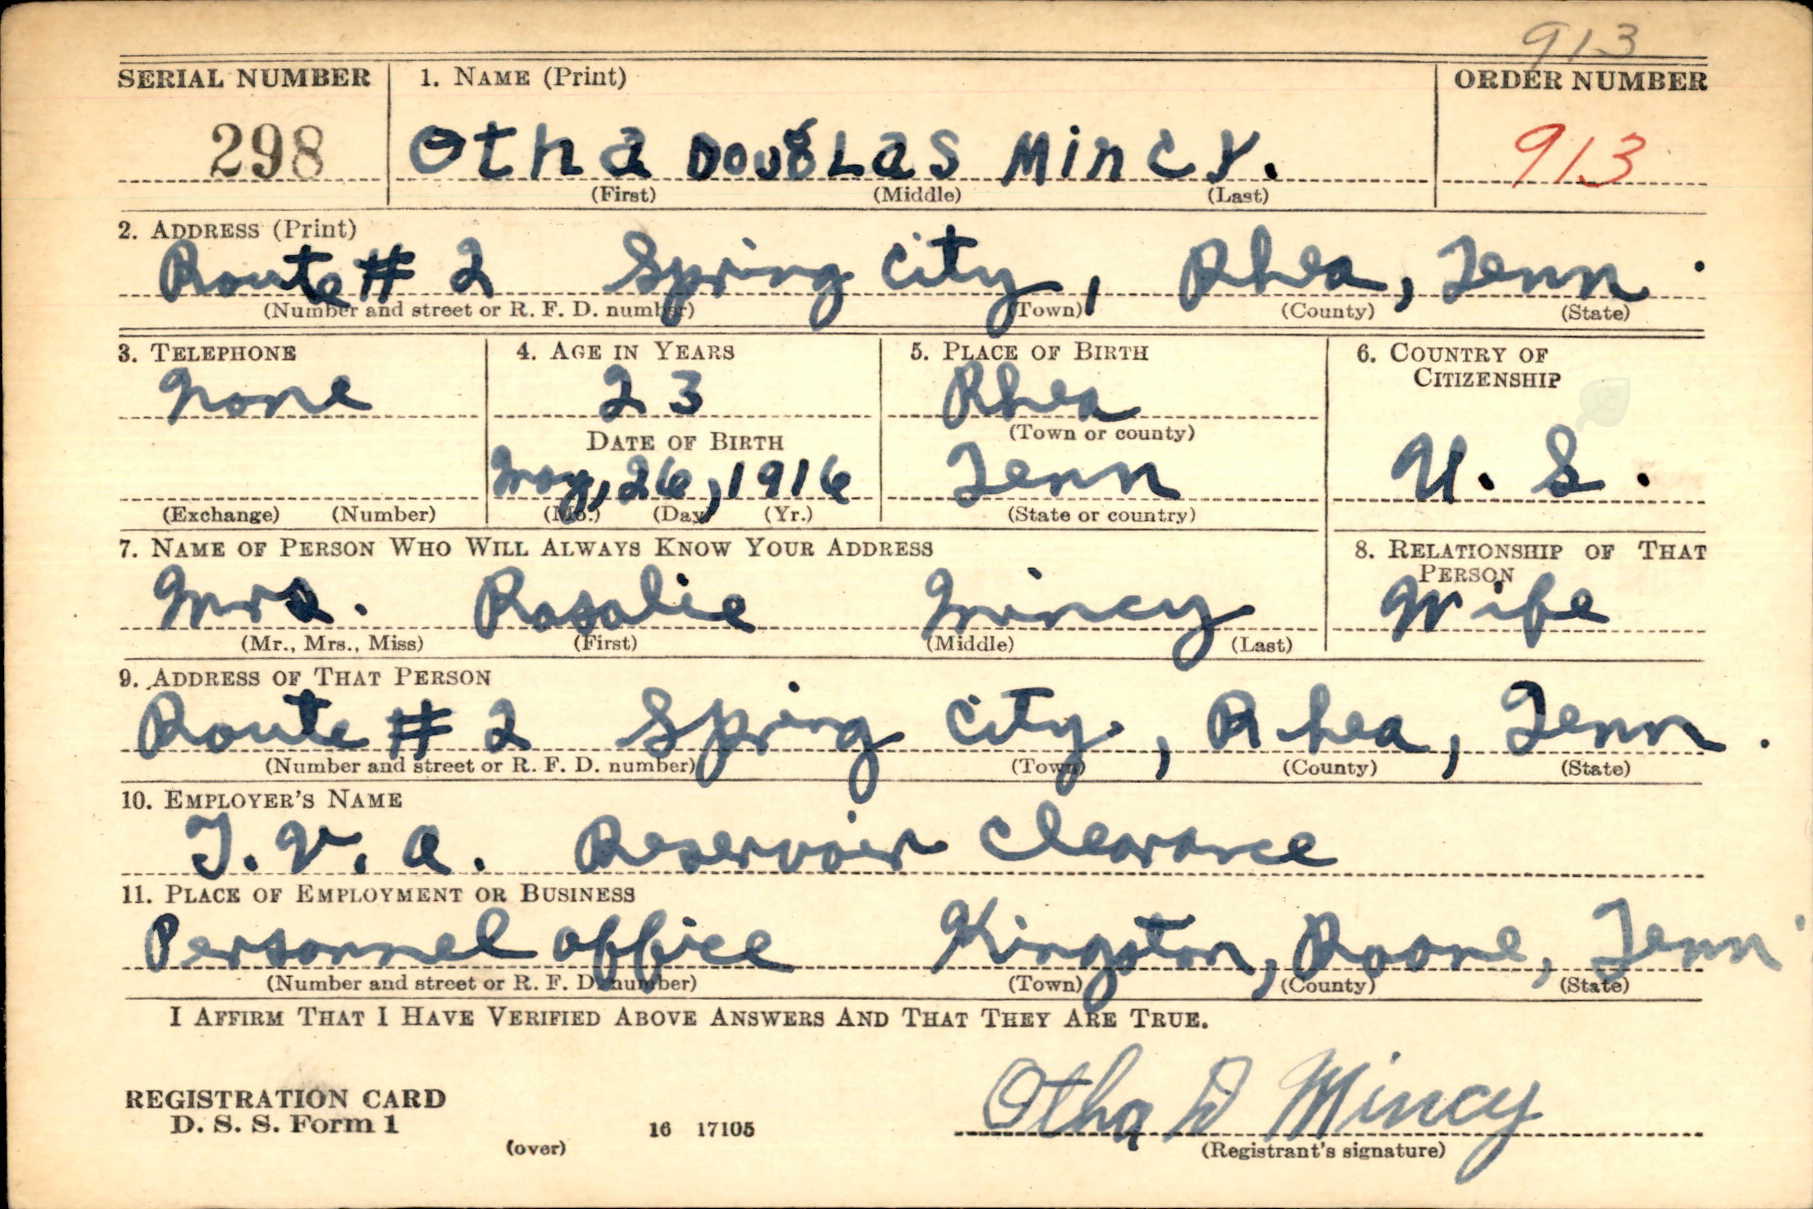 913
SERIAL NUMBER 1. NAME (Print) ORDER NUMBER
298 Otha Douglas Mincy. 913
(First) (Middle) (Last)
2. ADDRESS (Print)
Route # 2 Spring City, Rhea, Tenn.
(Number and street or R. F. D. number) (Town) (County) (State)
3. TELEPHONE 4. AGE IN YEARS 5. PLACE OF BIRTH 6. COUNTRY OF
CITIZENSHIP
None 23 Rhea
(Town or county)
DATE OF BIRTH
May, 26, 1916 Tenn U. S.
(Exchange) (Number) (Mo.) (Day) (Yr.) (State or country)
7. NAME OF PERSON WHO WILL ALWAYS KNOW YOUR ADDRESS 8. RELATIONSHIP OF THAT
PERSON
Mrs. Rosalie Mincy Wife
(Mr., Mrs., Miss) (First) (Middle) (Last)
9. ADDRESS OF THAT PERSON
Route # 2 Spring City, Rhea, Tenn.
(Number and street or R. F. D. number) (Town) (County) (State)
10. EMPLOYER'S NAME
T. V. A. Reservoir Clearance
11. PLACE OF EMPLOYMENT OR BUSINESS
Personnel office Kingston, Roane, Tenn
(Number and street or R. F. D. number) (Town) (County) (State)
I AFFIRM THAT I HAVE VERIFIED ABOVE ANSWERS AND THAT THEY ARE TRUE.
Otha D Mincy
REGISTRATION CARD
D. S. S. Form 1
(over) 16 17105 (Registrant's signature)